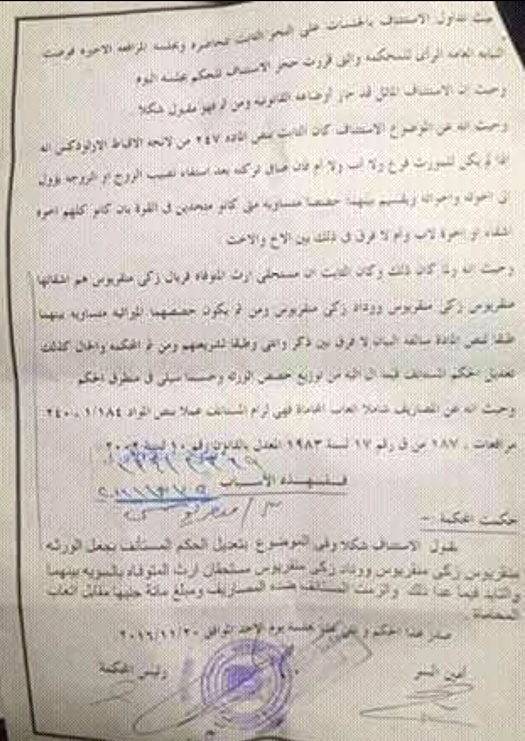 حيث تداول الاستئناف بالجلسات على النحو الثابت بمحاضره وبجلسه المرافعه الاخيره فوضت
النيابه العامه الرأى للمحكمه والتى قررت حجز الاستئناف للحكم بجلسه اليوم
وحيث ان الاستئناف الماثل قد حاز أوضاعه القانونيه ومن ثم فهو مقبول شكلا .
وحيث انه عن الموضوع الاستئناف كان الثابت بنص الماده ٢٤٧ من لائحه الاقباط الارثوذكس انه
اذا لم يكن للمورث فرع ولا أب ولا أم فان صافى تركته بعد استيفاء نصيب الزوج او الزوجه يؤول
الى اخوته واخواته ويقسم بينهما حصصا متساويه متى كانو متحدين فى القوة بان كانو كلهم اخوه
اشقاء او اخوة لاب وأم لا فرق فى ذلك بين الاخ والاخت .
وحيث انه ولما كان ذلك وكان الثابت ان مستحقى ارث المتوفاه فريال زكى منقريوس هم اشقائها
منقريوس زكى منقريوس ووداد زكى منقريوس ومن ثم يكون حصصهما الميراثيه متساويه بينهما
طبقا لنص المادة سالفه البيان لا فرق بين ذكر وانثى وطبقا لشريعتهم ومن ثم المحكمه والحال كذلك
تعديل الحكم المستأنف فيما ال اليه من توزيع حصص الورثه وحسبما سيلى فى منطوق الحكم
وحيث انه عن المصاريف شاملا اتعاب المحاماة فهى لزام المستأنف عملا بنص المواد ١/١٨٤ ، ٢٤٠
مرافعات ، ١٨٧ من ق رقم ١٧ لسنة ١٩٨٣ المعدل بالقانون رقم ١٠ لسنة ٢٠٠٢
فلهذه الأسباب
حكمت المحكمة :-
بقبول الاستئناف شكلا وفى الموضوع بتعديل الحكم المستأنف بجعل الورثه
منقريوس زكى منقريوس ووداد زكى منقريوس مستحقان ارث المتوفاه بالسويه بينهما
والتايد فيما عدا ذلك والزمت المستانف بهذه المصاريف ومبلغ مائة جنيها مقابل اتعاب
المحاماة .
صدر هذا الحكم و تلى علنا بجلسة يوم الاحد الموافق ٢٠١٦/١١/٢٠
أمين السر
رئيس المحكمة